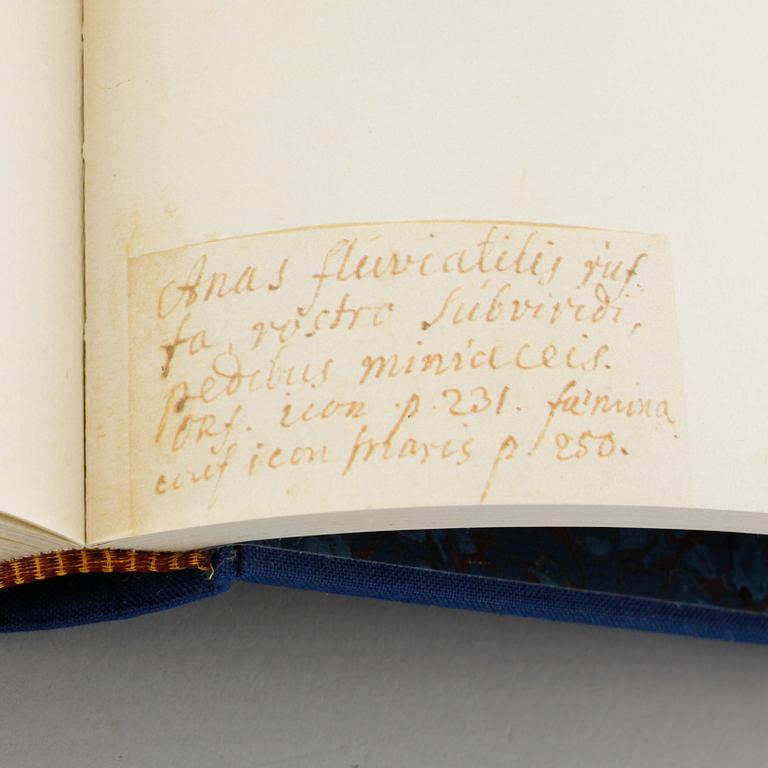 Anas fluviatilis ruf.
fa, rostro subviridi,
pedibus miniaceis.
icon p. 231. fæmina
icon maris p. 250.